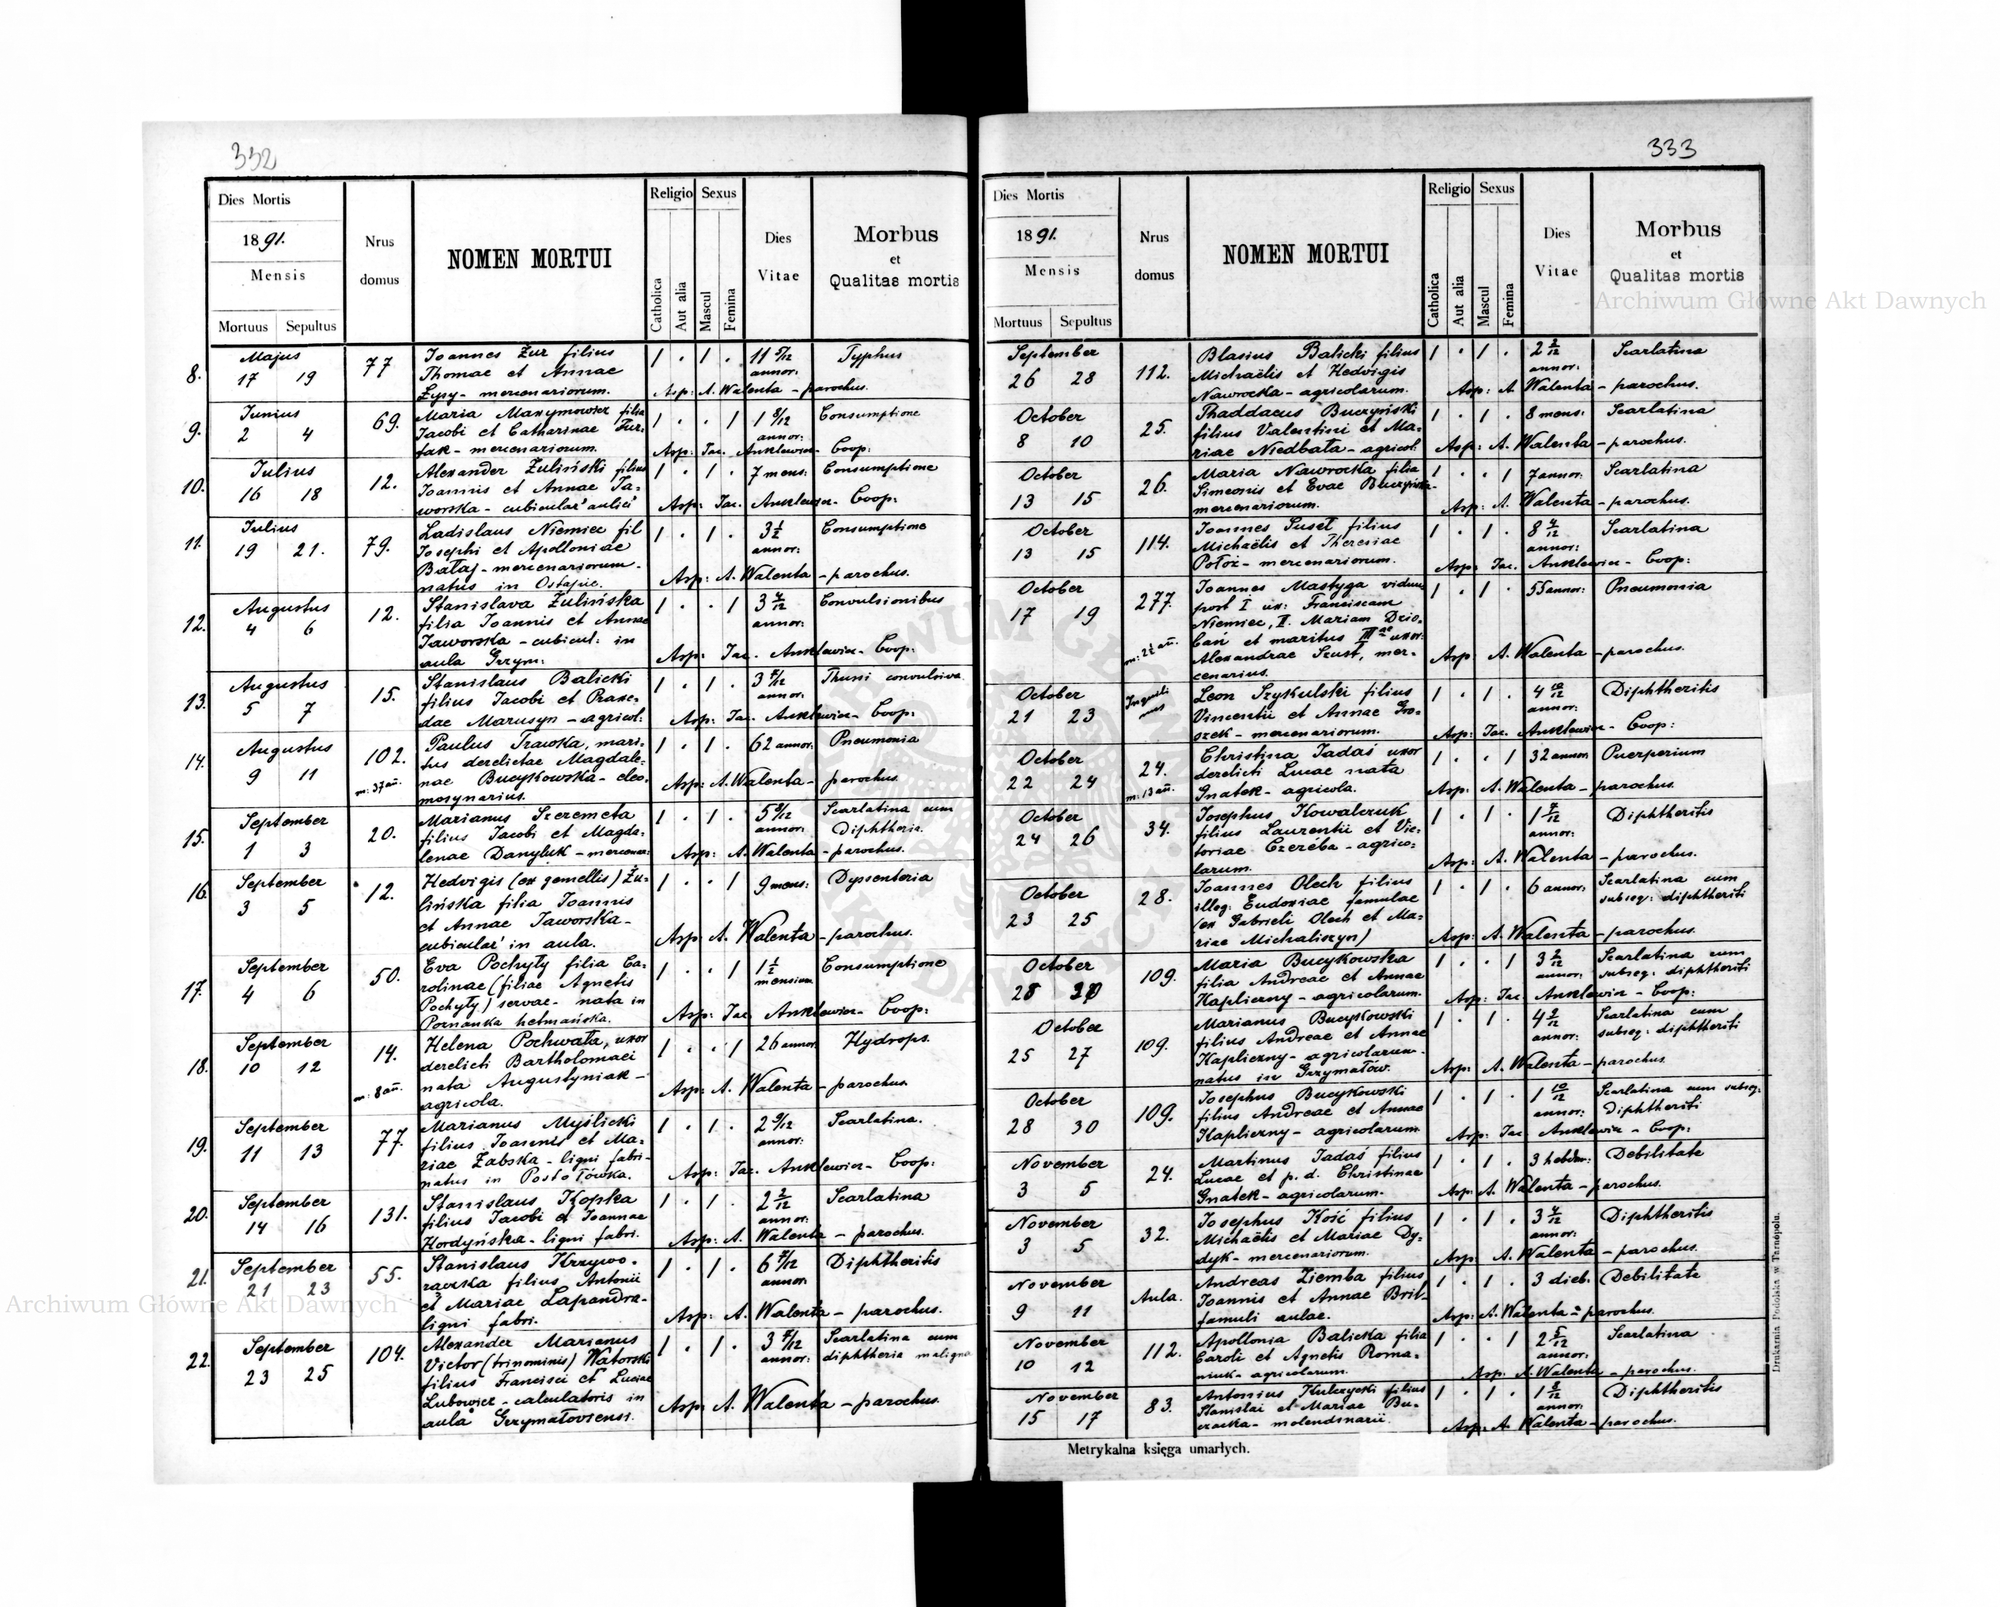 332
Dies Mortis
1891.
Mensis
Mortuus Sepultus
Nrus
domus
NOMEN MORTUI
Religio
Catholica
Aut alia
Sexus
Mascul
Femina
Dies
Vitae
Morbus
et
Qualitas mortis
8. Majus
17 19 77
Joannes Żur filius
Thomae et Annae
Łysy - mercenariorum.
1 . 1 . 11 5/12 annor: Typhus
Asp: A. Walenta - parochus.
9. Junius
2 4 69.
Maria Maxymowicz filia
Jacobi et Catharinae Fur-
tak - mercenariorum.
1 . . 1 1 8/12 annor: Consumptione
Asp: Jac. Anklewicz - Coop:
10. Julius
16 18 12.
Alexander Żuliński filius
Joannis et Annae Ja-
worska - cubicular' aulici
1 . 1 . 7 mens: Consumptione
Asp: Jac. Anklewicz - Coop:
11. Julius
19 21. 79.
Ladislaus Niemiec fil
Josephi et Apolloniae
Bataj - mercenariorum -
natus in Ostapie.
1 . 1 . 3 1/2 annor: Consumptione
Asp: A. Walenta - parochus.
12. Augustus
4 6 12.
Stanislava Żulińska
filia Joannis et Annae
Jaworska - cubicul: in
aula Grzym:
1 . . 1 3 4/12 annor: Convulsionibus
Asp: Jac. Anklewicz - Coop:
13. Augustus
5 7 15.
Stanislaus Balicki
filius Jacobi et Praxe-
dae Marusyn - agricol:
1 . 1 . annor: Thussi convulsiva
Asp: Jac. Anklewicz - Coop:
14. Augustus
9 11 102.
m: 37 an.
Paulus Trawka, mari-
tus derelictae Magdale-
nae Bucykowska - eleo-
mosynarius.
1 . 1 . 62 annor: Pneumonia
Asp: A. Walenta - parochus
15. September
1 3 20.
Marianus Szeremeta
filius Jacobi et Magda-
lenae Danyluk - mercenar:
1 . 1 . annor: Scarlatina cum
Diphtheria.
Asp: A. Walenta - parochus.
16. September
3 5 12.
Hedvigis (ex gemellis) Żu-
lińska filia Joannis
et Annae Jaworska -
cubicular' in aula.
1 . . 1 9 mens: Dyssenteria
Asp: A. Walenta - parochus.
17. September
4 6 50.
Eva Pochyły filia Ca-
rolinae (filiae Agnetis
Pochyły) servae - nata in
Poznanka hetmańska.
1 . . 1 1 1/2 mensium Consumptione
Asp: Jac. Anklewicz - Coop:
18. September
10 12 14.
m: 8 an.
Helena Pochwała, uxor
derelicti Bartholomaei
nata Augustyniak -
agricola.
1 . . 1 26 annor. Hydrops.
Asp: A. Walenta - parochus
19. September
11 13 77.
Marianus Myślicki
filius Joannis et Ma-
riae Żabska - ligni fabri -
natus in Postołówka.
1 . 1 . 2 9/12 annor: Scarlatina.
Asp: Jac. Anklewicz - Coop:
20. September
14 16 131.
Stanislaus Kopka
filius Jacobi et Joannae
Hordyńska - ligni fabri.
1 . 1 . annor: Scarlatina
Asp: A. Walenta - parochus.
21. September
21 23 55.
Stanislaus Krzywo-
rączka filius Antonii
et Mariae Lapandra -
ligni fabri.
1 . 1 . 6 7/12 annor Diphtheritis
Asp: A. Walenta - parochus.
22. September
23 25 104.
Alexander Marianus
Victor (trinominis) Watorski
filius Francisci et Luciae
Lubowicz - calculatoris in
aula Grzymałoviensi.
1 . 1 . annor: Scarlatina cum
diphtheria maligna
Asp: A. Walenta - parochus.
333
Dies Mortis
1891.
Mensis
Mortuus Sepultus
Nrus
domus
NOMEN MORTUI
Religio
Catholica
Aut alia
Sexus
Mascul
Femina
Dies
Vitae
Morbus
et
Qualitas mortis
September
26 28 112.
Blasius Balicki filius
Michaëlis et Hedvigis
Nawrocka - agricolarum.
1 . 1 . annor: Scarlatina
Asp: A Walenta - parochus.
October
8 10 25.
Thaddaeus Buczyński
filius Valentini et Ma-
riae Niedbała - agricol
1 . 1 . 8 mens: Scarlatina
Asp: A. Walenta - parochus.
October
13 15 26.
Maria Nawrocka filia
Simeonis et Evae Buczyńska -
mercenariorum.
1 . . 1 7 annor: Scarlatina
Asp: A. Walenta - parochus.
October
13 15 114.
Joannes Suset filius
Michaëlis et Theresiae
Półoż - mercenariorum.
1 . 1 . annor: Scarlatina
Asp: Jac. Anklewicz - Coop:
October
17 19 277.
Joannes Mastyga viduus
post I ux: Franciscam
Niemiec, II. Mariam Dzio-
bań et maritus III ae uxor:
Alexandrae Szust, mer-
cenarius.
1 . 1 . 55 annor: Pneumonia
Asp: A. Walenta - parochus.
October
21 23 Inquilinus
Leon Szykulski filius
Vincentii et Annae Gro-
szek - mercenariorum.
1 . 1 . 4 10/12 annor: Diphtheritis
Asp: Jac. Anklewicz - Coop:
October
22 24 24.
m: 13 an.
Christina Tadaś uxor
derelicti Lucae nata
Gnatek - agricola.
1 . . 1 32 annor Puerperium
Asp: A. Walenta - parochus.
October
24 26 34.
Josephus Kowalczuk
filius Laurentii et Vic-
toriae Czeréba - agrico-
larum.
1 . 1 . annor: Diphtheritis
Asp: A. Walenta - parochus.
October
23 25 28.
Joannes Olech filius
illeg: Eudoxiae famulae
(ex Gabrieli Olech et Ma-
riae Michaliszyn)
1 . 1 . 6 annor: Scarlatina cum
subseq: diphtheriti
Asp: A. Walenta - parochus.
October
28 30 109.
Maria Bucykowska
filia Andreae et Annae
Kapliczny - agricolarum.
1 . . 1 annor: Scarlatina cum
subseq: diphtheriti
Asp: Jac. Anklewicz - Coop:
October
25 27 109.
Marianus Bucykowski
filius Andreae et Annae
Kapliczny - agricolarum -
natus in Grzymałów.
1 . 1 . annor: Scarlatina cum
subseq: diphtheriti
Asp: A. Walenta - parochus.
October
28 30 109.
Josephus Bucykowski
filius Andreae et Annae
Kapliczny - agricolarum
1 . 1 . 1 10/12 annor: Scarlatina cum subseq:
Diphtheriti
Asp: Jac. Anklewicz - Coop:
November
3 5 24.
Martinus Tadaś filius
Lucae et p. d. Christinae
Gnatek - agricolarum.
1 . 1 . 3 hebdom: Debilitate
Asp: A. Walenta - parochus.
November
3 5 32.
Josephus Kość filius
Michaëlis et Mariae Dy-
dyk - mercenariorum.
1 . 1 . 3 4/12 annor: Diphtheritis
Asp. A. Walenta - parochus.
November
9 11 Aula.
Andreas Ziemba filius
Joannis et Annae Bril -
famuli aulae.
1 . 1 . 3 dieb. Debilitate
Asp: A. Walenta - parochus.
November
10 12 112.
Apollonia Balicka filia
Caroli et Agnetis Roma-
niuk - agricolarum.
1 . . 1 2 5/12 annor: Scarlatina
Asp: A. Walenta - parochus.
November
15 17 83.
Antonius Kulczycki filius
Stanislai et Mariae Bu-
czacka - molendinarii.
1 . 1 . 1 8/12 annor: Diphtheritis
Asp: A. Walenta - parochus.
Metrykalna księga umarłych.
Drukarnia Podolska w Tarnopolu.
Archiwum Główne Akt Dawnych
Archiwum Główne Akt Dawnych